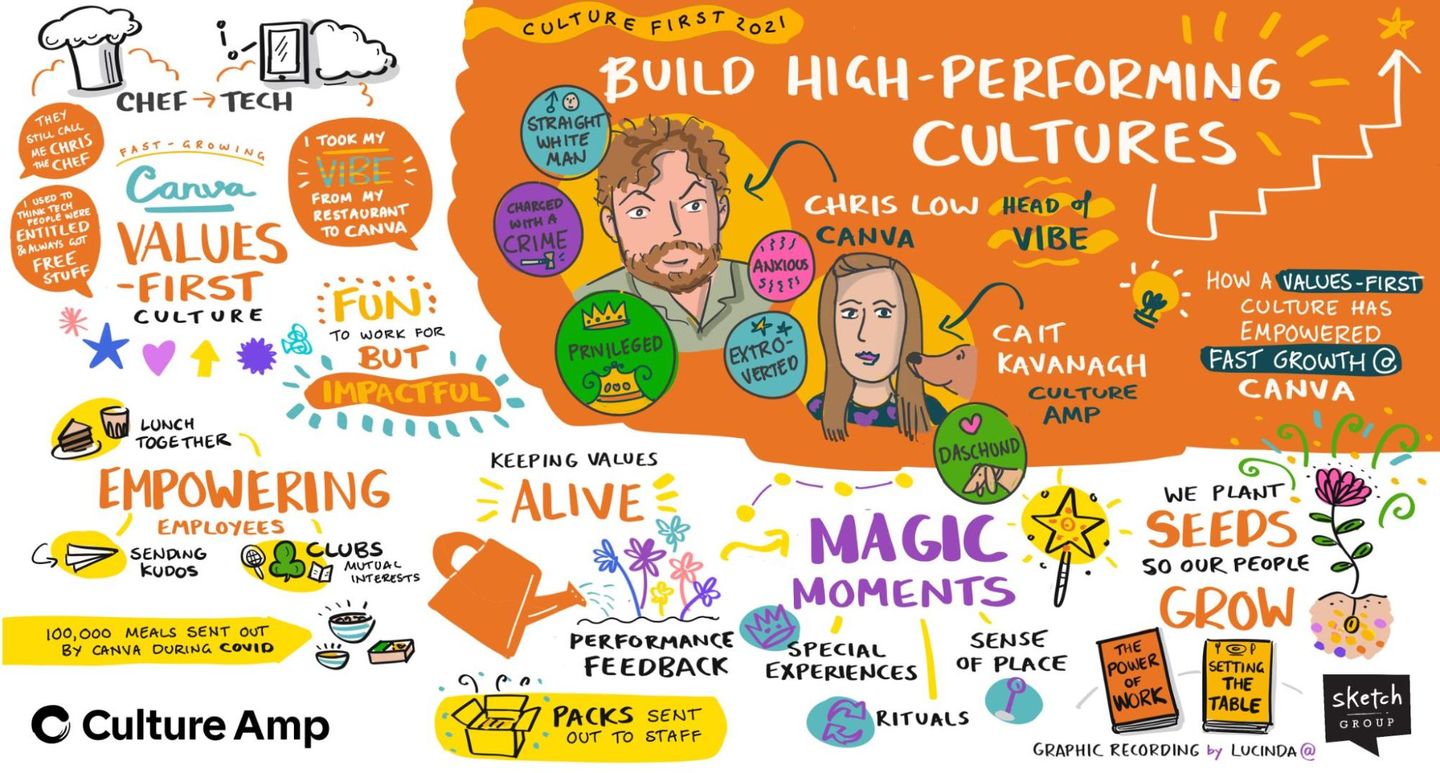 CULTURE FIRST 2021
BUILD HIGH-PERFORMING
CULTURES
CHEF → TECH
THEY
STILL CALL
ME CHRIS
THE CHEF
FAST-GROWING
Canva
VALUES
-FIRST
CULTURE
I USED TO
THINK TECH
PEOPLE WERE
ENTITLED
& ALWAYS GOT
FREE
STUFF
I TOOK MY
VIBE
FROM MY
RESTAURANT
TO CANVA
FUN
TO WORK FOR
BUT
IMPACTFUL
STRAIGHT
WHITE
MAN
CHARGED
WITH A
CRIME
PRIVILEGED
ANXIOUS
EXTRO-
VERTED
CHRIS LOW
CANVA
HEAD of
VIBE
CAIT
KAVANAGH
CULTURE
AMP
DASCHUND
HOW A VALUES-FIRST
CULTURE HAS
EMPOWERED
FAST GROWTH @
CANVA
LUNCH
TOGETHER
EMPOWERING
EMPLOYEES
SENDING
KUDOS
CLUBS
MUTUAL
INTERESTS
100,000 MEALS SENT OUT
BY CANVA DURING COVID
Culture Amp
KEEPING VALUES
ALIVE
PERFORMANCE
FEEDBACK
PACKS SENT
OUT TO STAFF
MAGIC
MOMENTS
SPECIAL
EXPERIENCES
RITUALS
SENSE
OF PLACE
WE PLANT
SEEDS
SO OUR PEOPLE
GROW
THE
POWER
OF
WORK
SETTING
THE
TABLE
sketch
GROUP
GRAPHIC RECORDING by LUCINDA@